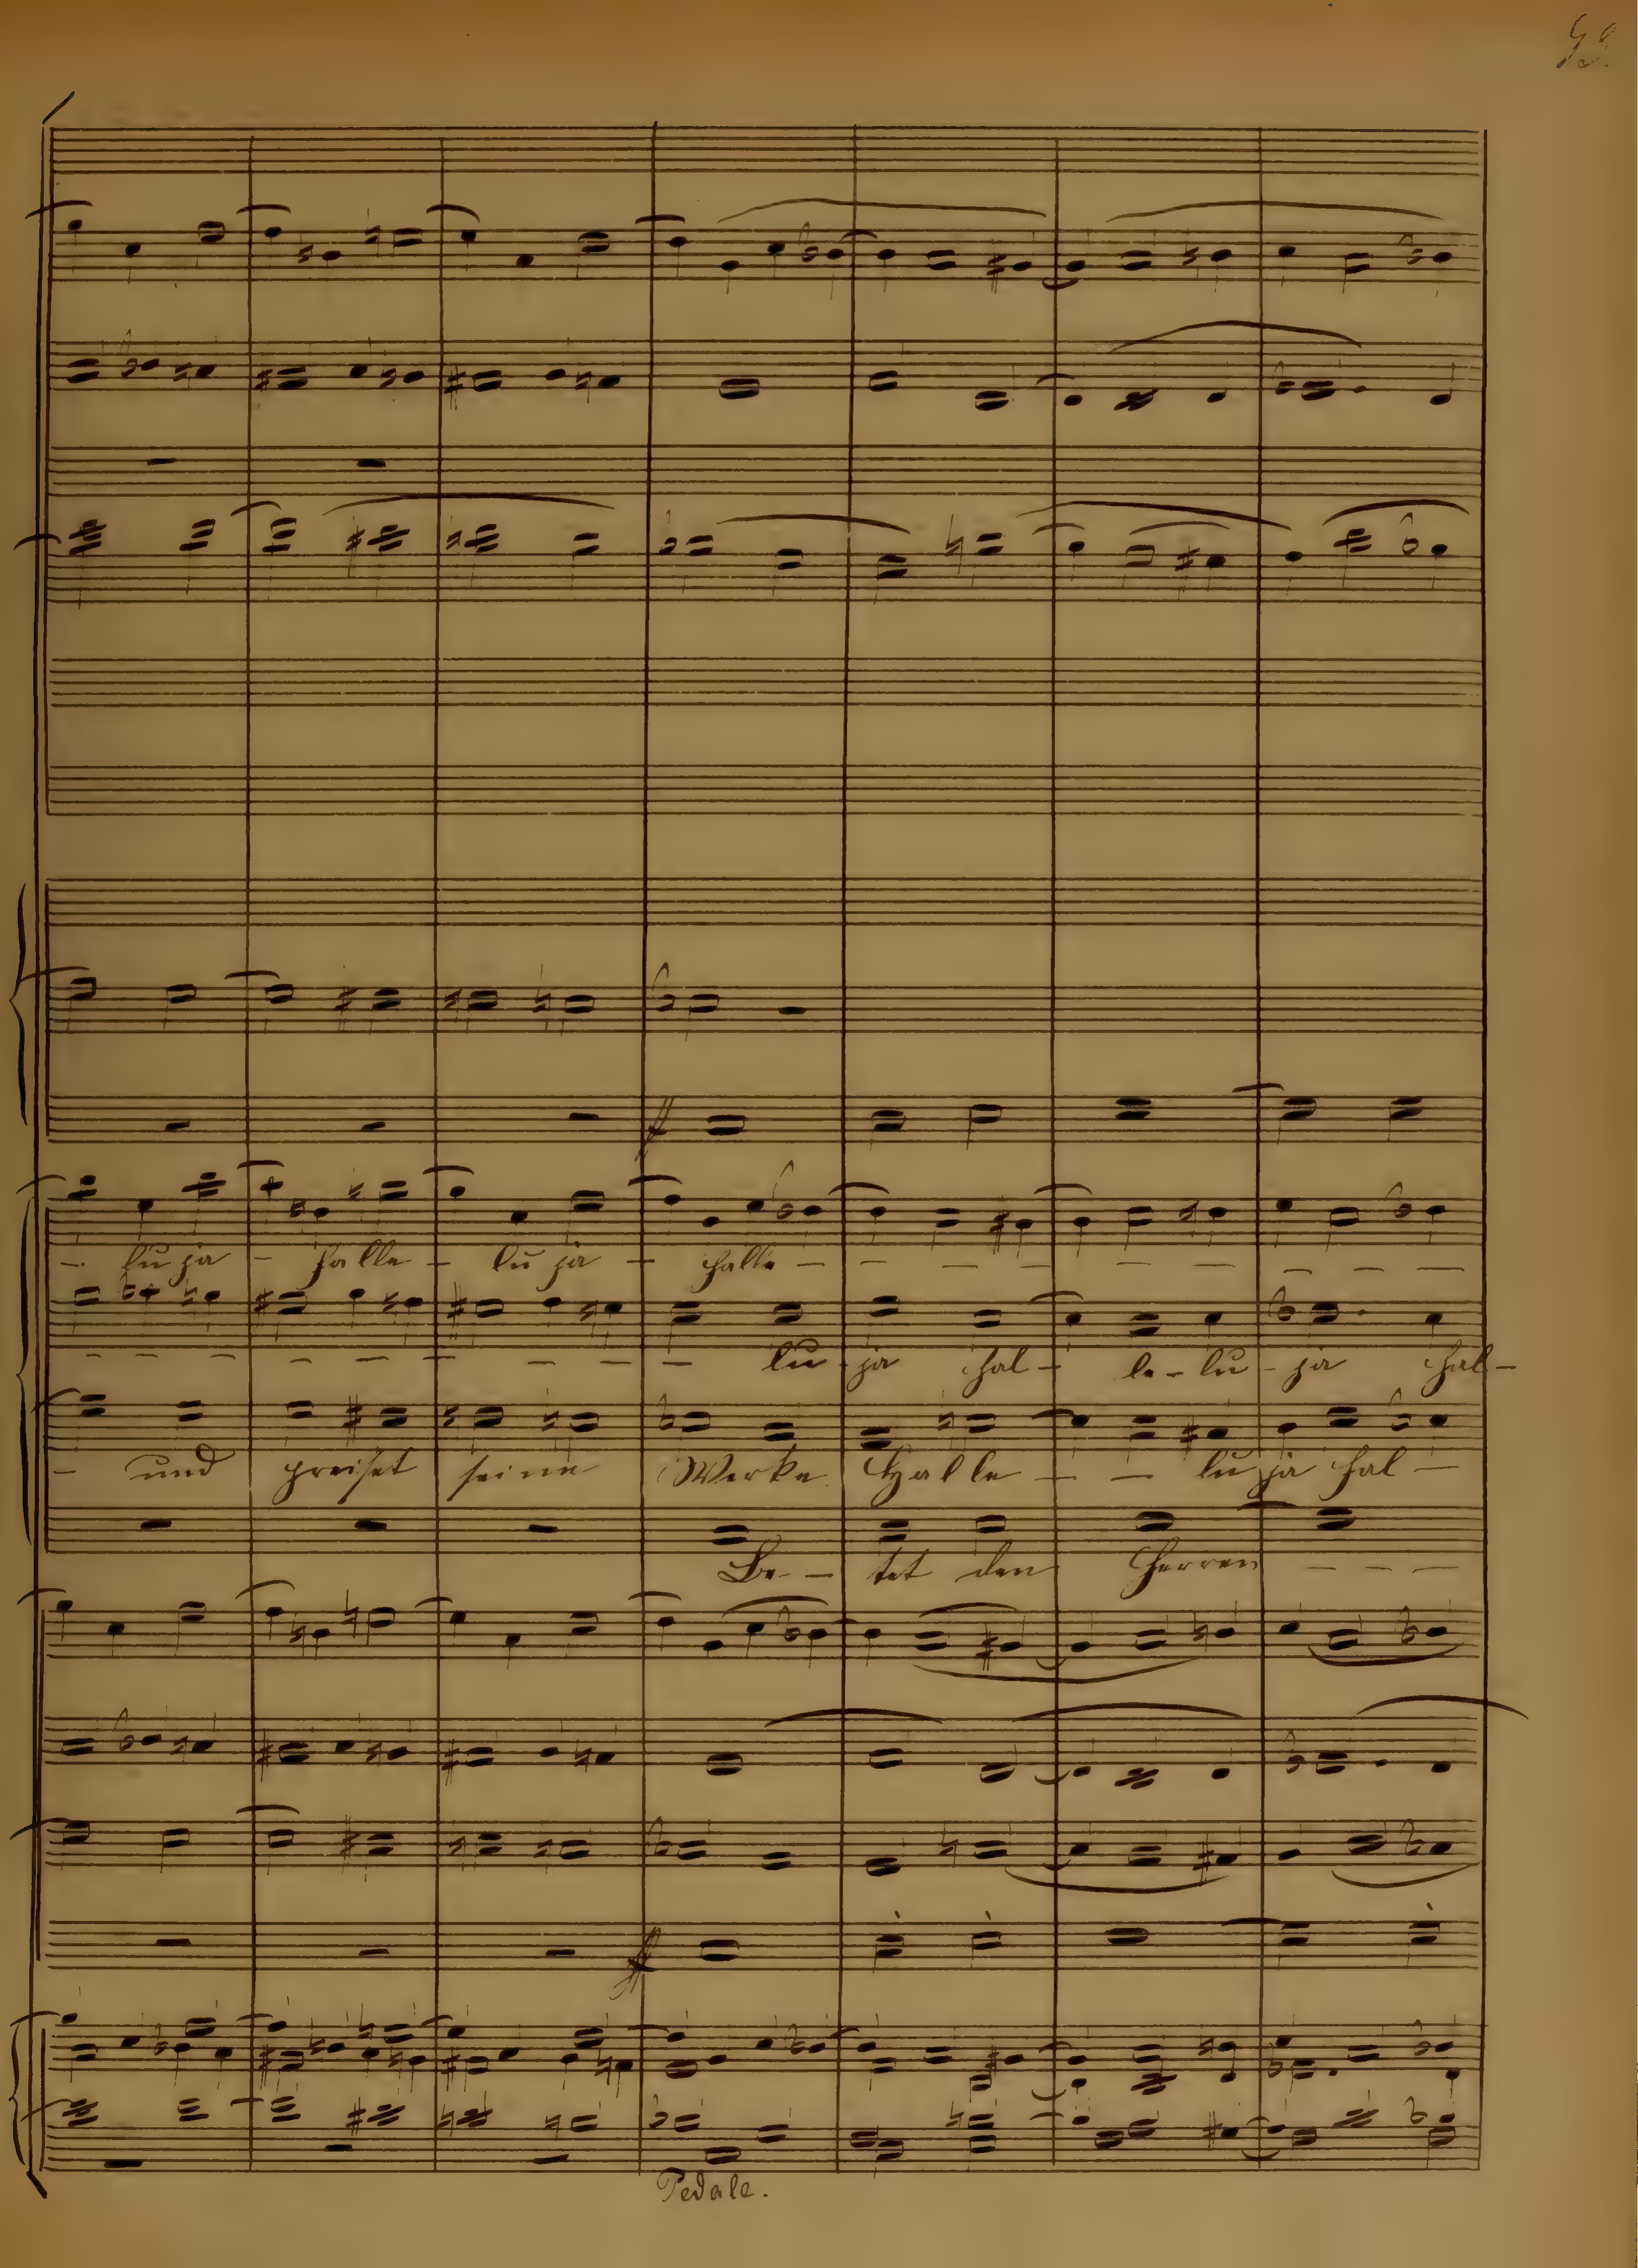 - lu ja - halle - lu ja - halle - - - - - - - -
- - - - - - - - - lu - ja hal - le - lu - ja hal -
- und preiset seine Werke Halle - - lu ja hal -
Be - tet den Herren - - -
Pedale.